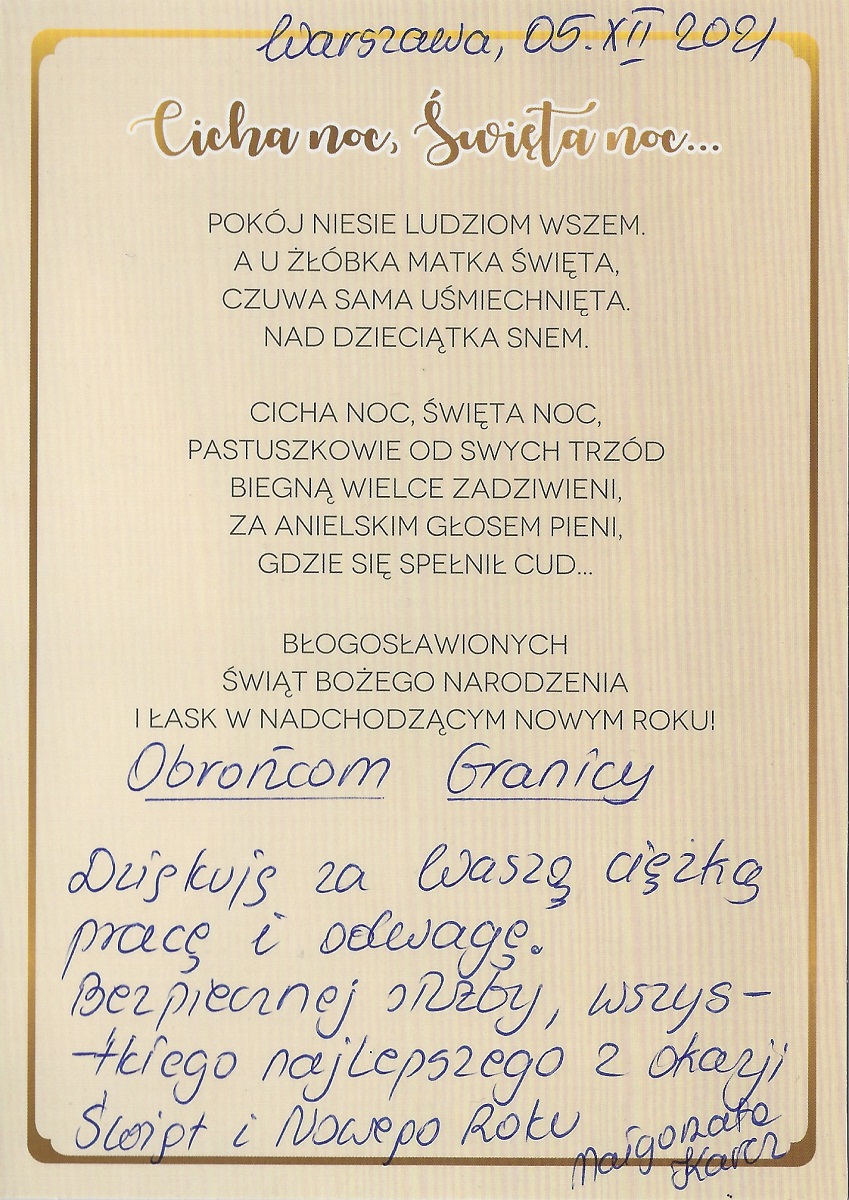 Warszawa, 05.XII 2021
Cicha noc, Święta noc...
POKÓJ NIESIE LUDZIOM WSZEM.
A U ŻŁÓBKA MATKA ŚWIĘTA,
CZUWA SAMA UŚMIECHNIĘTA.
NAD DZIECIĄTKA SNEM.
CICHA NOC, ŚWIĘTA NOC,
PASTUSZKOWIE OD SWYCH TRZÓD
BIEGNĄ WIELCE ZADZIWIENI,
ZA ANIELSKIM GŁOSEM PIENI,
GDZIE SIĘ SPEŁNIŁ CUD...
BŁOGOSŁAWIONYCH
ŚWIĄT BOŻEGO NARODZENIA
I ŁASK W NADCHODZĄCYM NOWYM ROKU!
Obrońcom Granicy
Dziękuję za Waszą ciężką
pracę i odwagę.
Bezpiecznej służby, wszys-
-tkiego najlepszego z okazji
Świąt i Nowego Roku
Małgorzata
Karcz